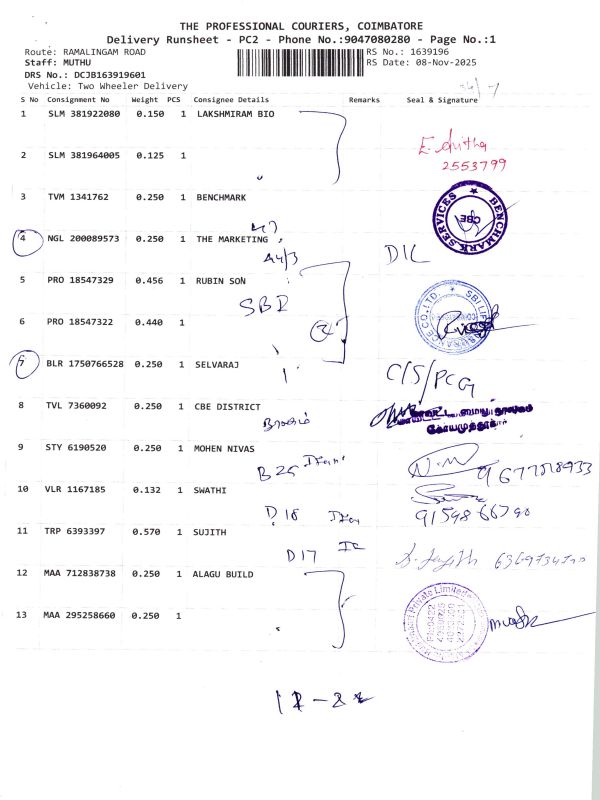 THE PROFESSIONAL COURIERS, COIMBATORE
Delivery Runsheet - PC2 - Phone No.:9047080280 - Page No.:1
Route: RAMALINGAM ROAD RS No.: 1639196
Staff: MUTHU RS Date: 08-Nov-2025
DRS No.: DCJB163919601
Vehicle: Two Wheeler Delivery
S No Consignment No Weight PCS Consignee Details Remarks Seal & Signature
1 SLM 381922080 0.150 1 LAKSHMIRAM BIO
2553799
2 SLM 381964005 0.125 1
3 TVM 1341762 0.250 1 BENCHMARK
BENCHMARK SERVICES CBE
4 NGL 200089573 0.250 1 THE MARKETING
D1L
5 PRO 18547329 0.456 1 RUBIN SON
SBI
6 PRO 18547322 0.440 1
2
7 BLR 1750766528 0.250 1 SELVARAJ
C/S/PCG
8 TVL 7360092 0.250 1 CBE DISTRICT
நூலகம்
9 STY 6190520 0.250 1 MOHEN NIVAS
B25
10 VLR 1167185 0.132 1 SWATHI
D18
11 TRP 6393397 0.570 1 SUJITH
D17
12 MAA 712838738 0.250 1 ALAGU BUILD
13 MAA 295258660 0.250 1